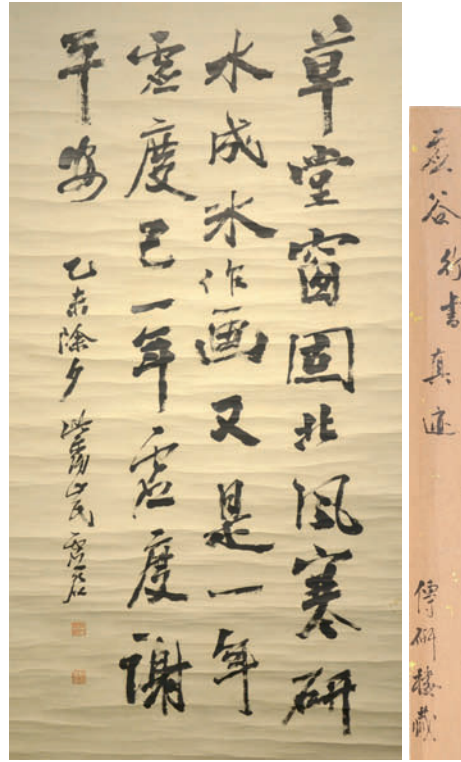 草堂窗固北风寒研
水成冰作画又是一年
虚度已一年虚度谢
平安
乙未除夕紫阳山民虚谷
虚谷行書真迹
傳研樓藏